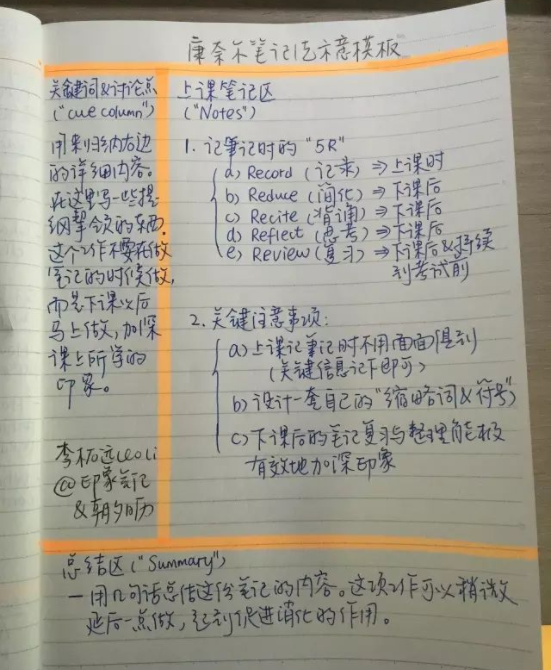 康奈尔笔记法示意模板
关键词&讨论点
("cue column")
用来归纳右边
的详细内容。
在这里写一些提
纲挈领的东西.
这个工作不要在做
笔记的时候做,
而是下课以后
马上做,加深
课上所学的
印象。
李柘远LEO Li
@印象笔记
&朝夕日历
上课笔记区
("Notes")
1. 记笔记时的 "5R"
a) Record (记录) ⇒ 上课时
b) Reduce (简化) ⇒ 下课后
c) Recite (背诵) ⇒ 下课后
d) Reflect (思考) ⇒ 下课后
e) Review (复习) ⇒ 下课后&持续
到考试前
2. 关键注意事项:
a) 上课记笔记时不用面面俱到
(关键信息记下即可)
b) 设计一套自己的"缩略词&符号"
c) 下课后的笔记复习与整理能极
有效地加深印象
总结区 ("Summary")
一用几句话总结这份笔记的内容。这项工作可以稍微
延后一点做,起到促进消化的作用。